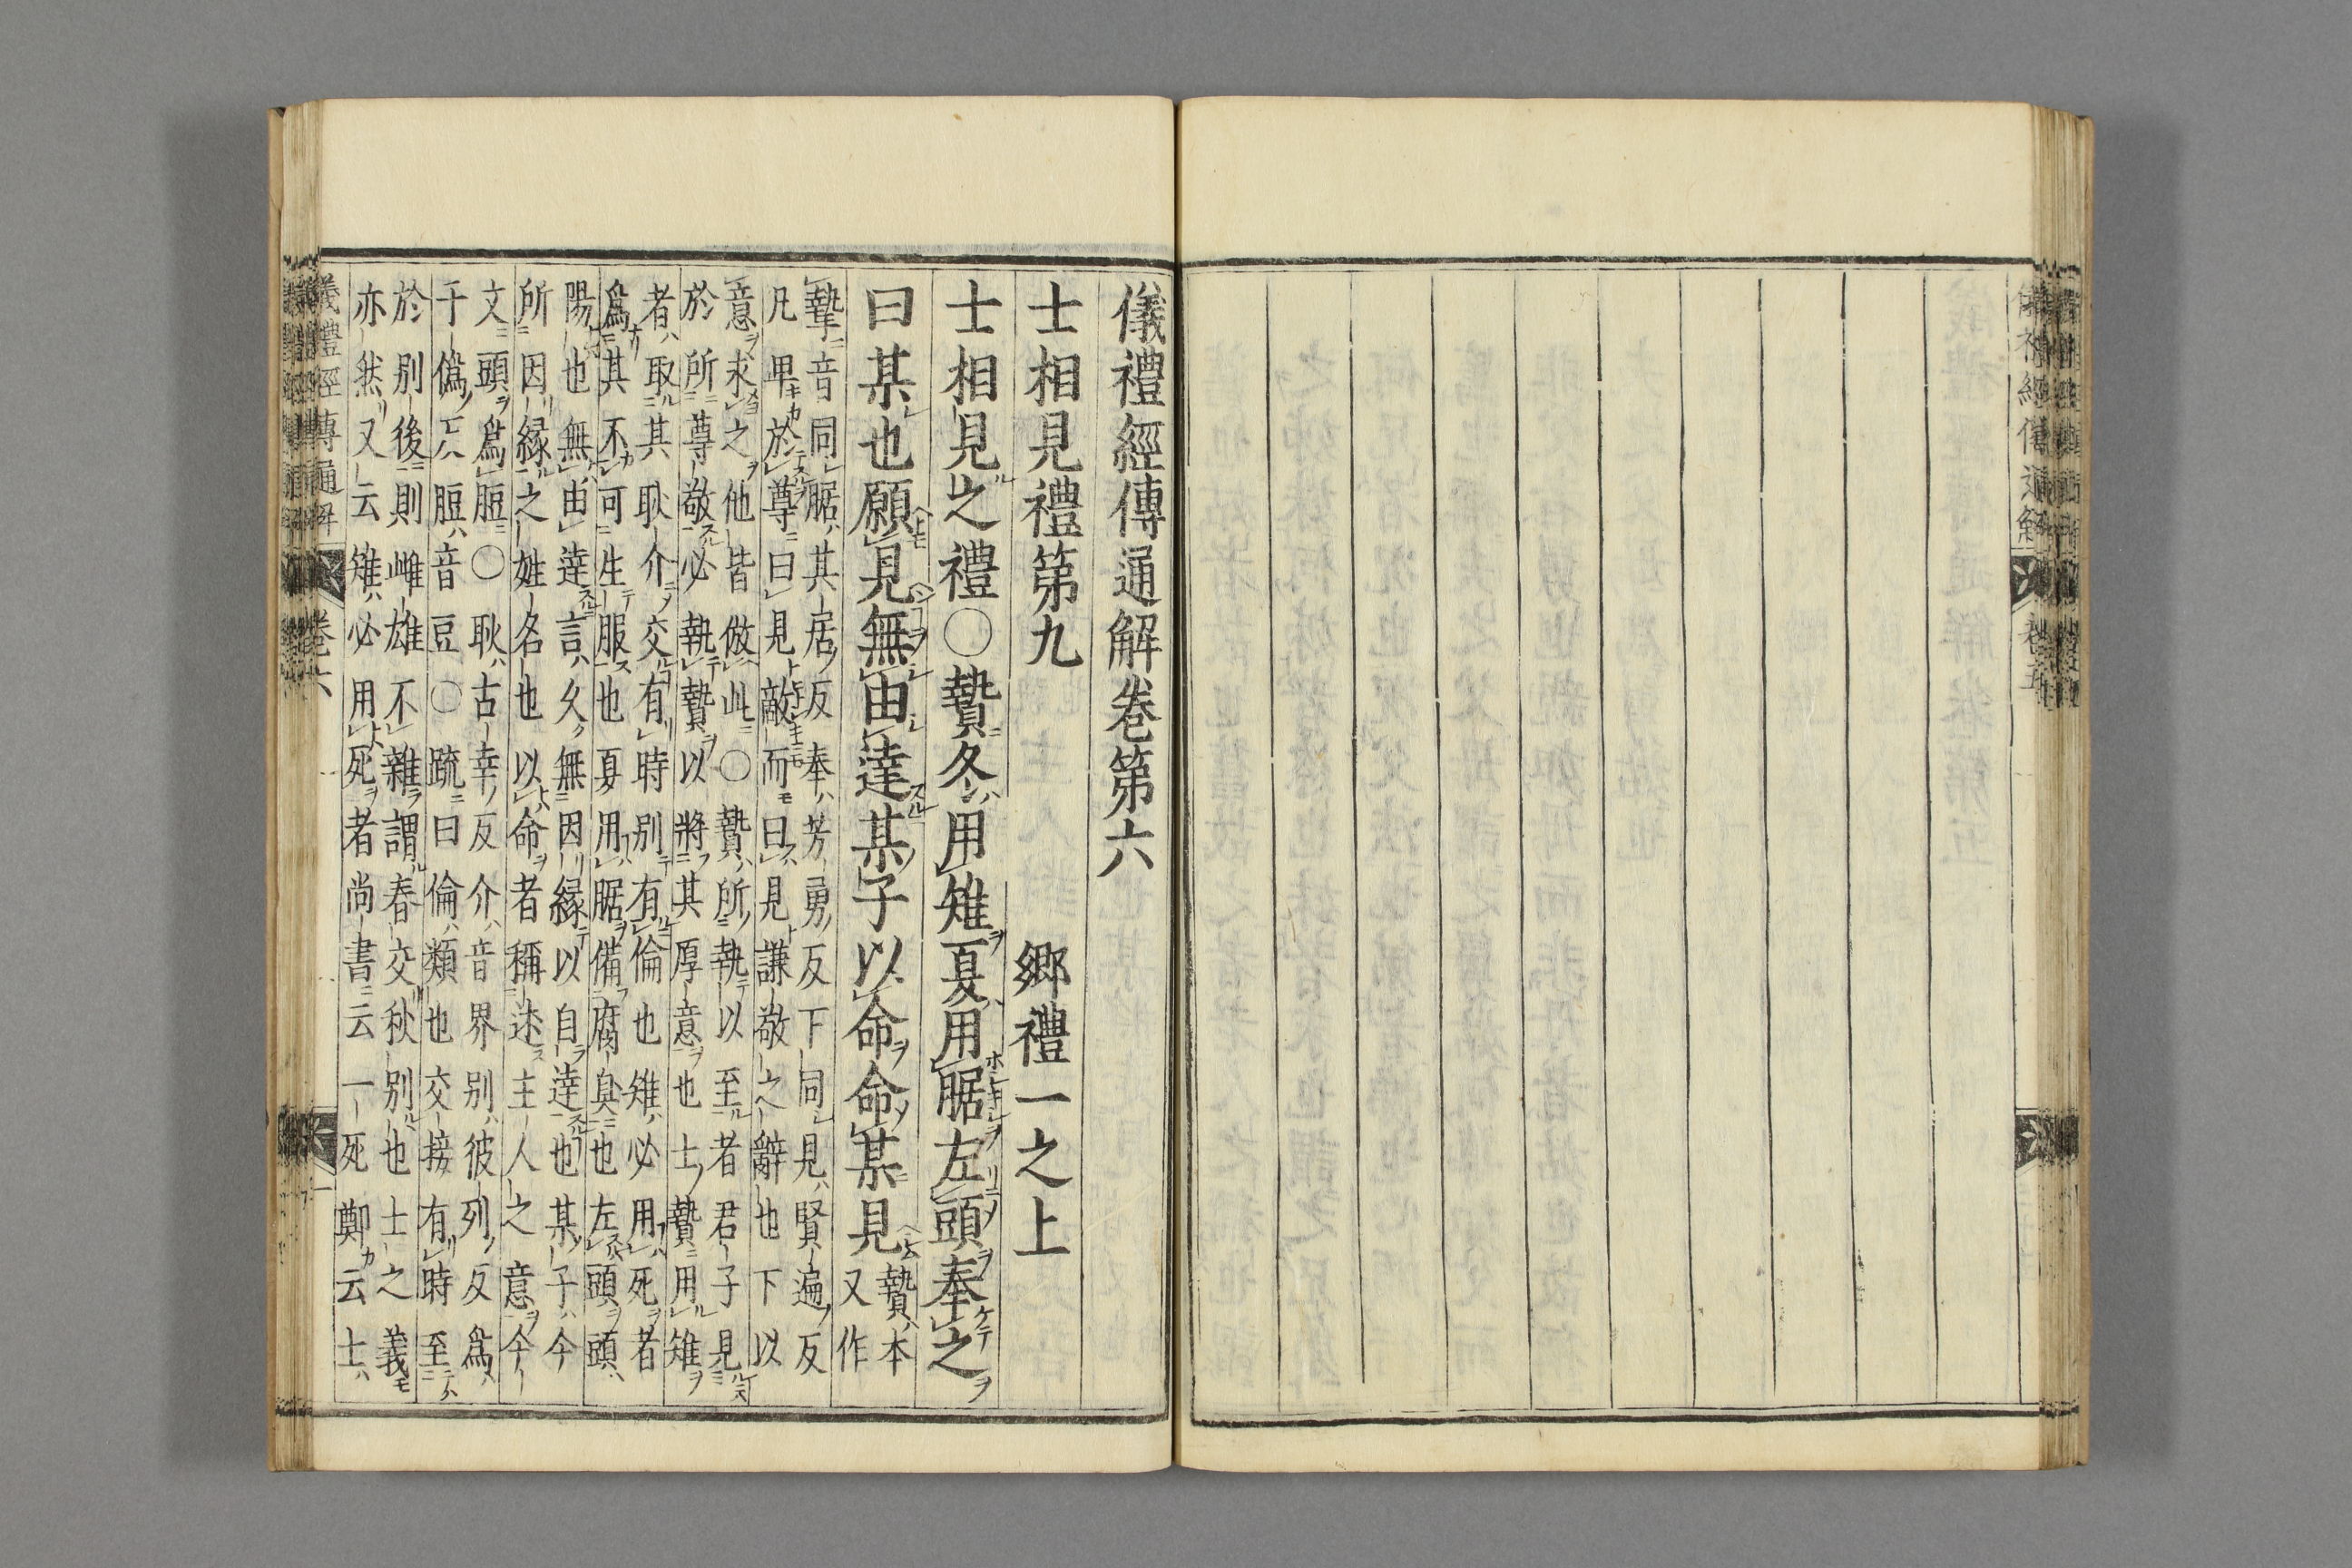 儀禮經傳通解卷第六
士相見禮第九　郷禮一之上
士相見之禮○贄冬用雉夏用腒左頭奉之
曰某也願見無由達某子以命命某見贄本
又作
摯音同腒其居反奉芳勇反下同見賢遍反
凡卑於尊曰見敵而曰見謙敬之辭也下以
意求之他皆倣此○贄所執以至者君子見
於所尊敬必執贄以將其厚意也士贄用雉
者取其耿介交有時別有倫也雉必用死者
爲其不可生服也夏用腒備腐臭也左頭頭
陽也無由達言久無因縁以自達也某子今
所因縁之姓名也以命者稱述主人之意今
文頭爲脰○耿古幸反介音界別彼列反爲
于僞反脰音豆○疏曰倫類也交接有時至
於別後則雌雄不雜謂春交秋別也士之義
亦然又云雉必用死者尚書云一死鄭云士
儀禮經傳通解　卷六　一